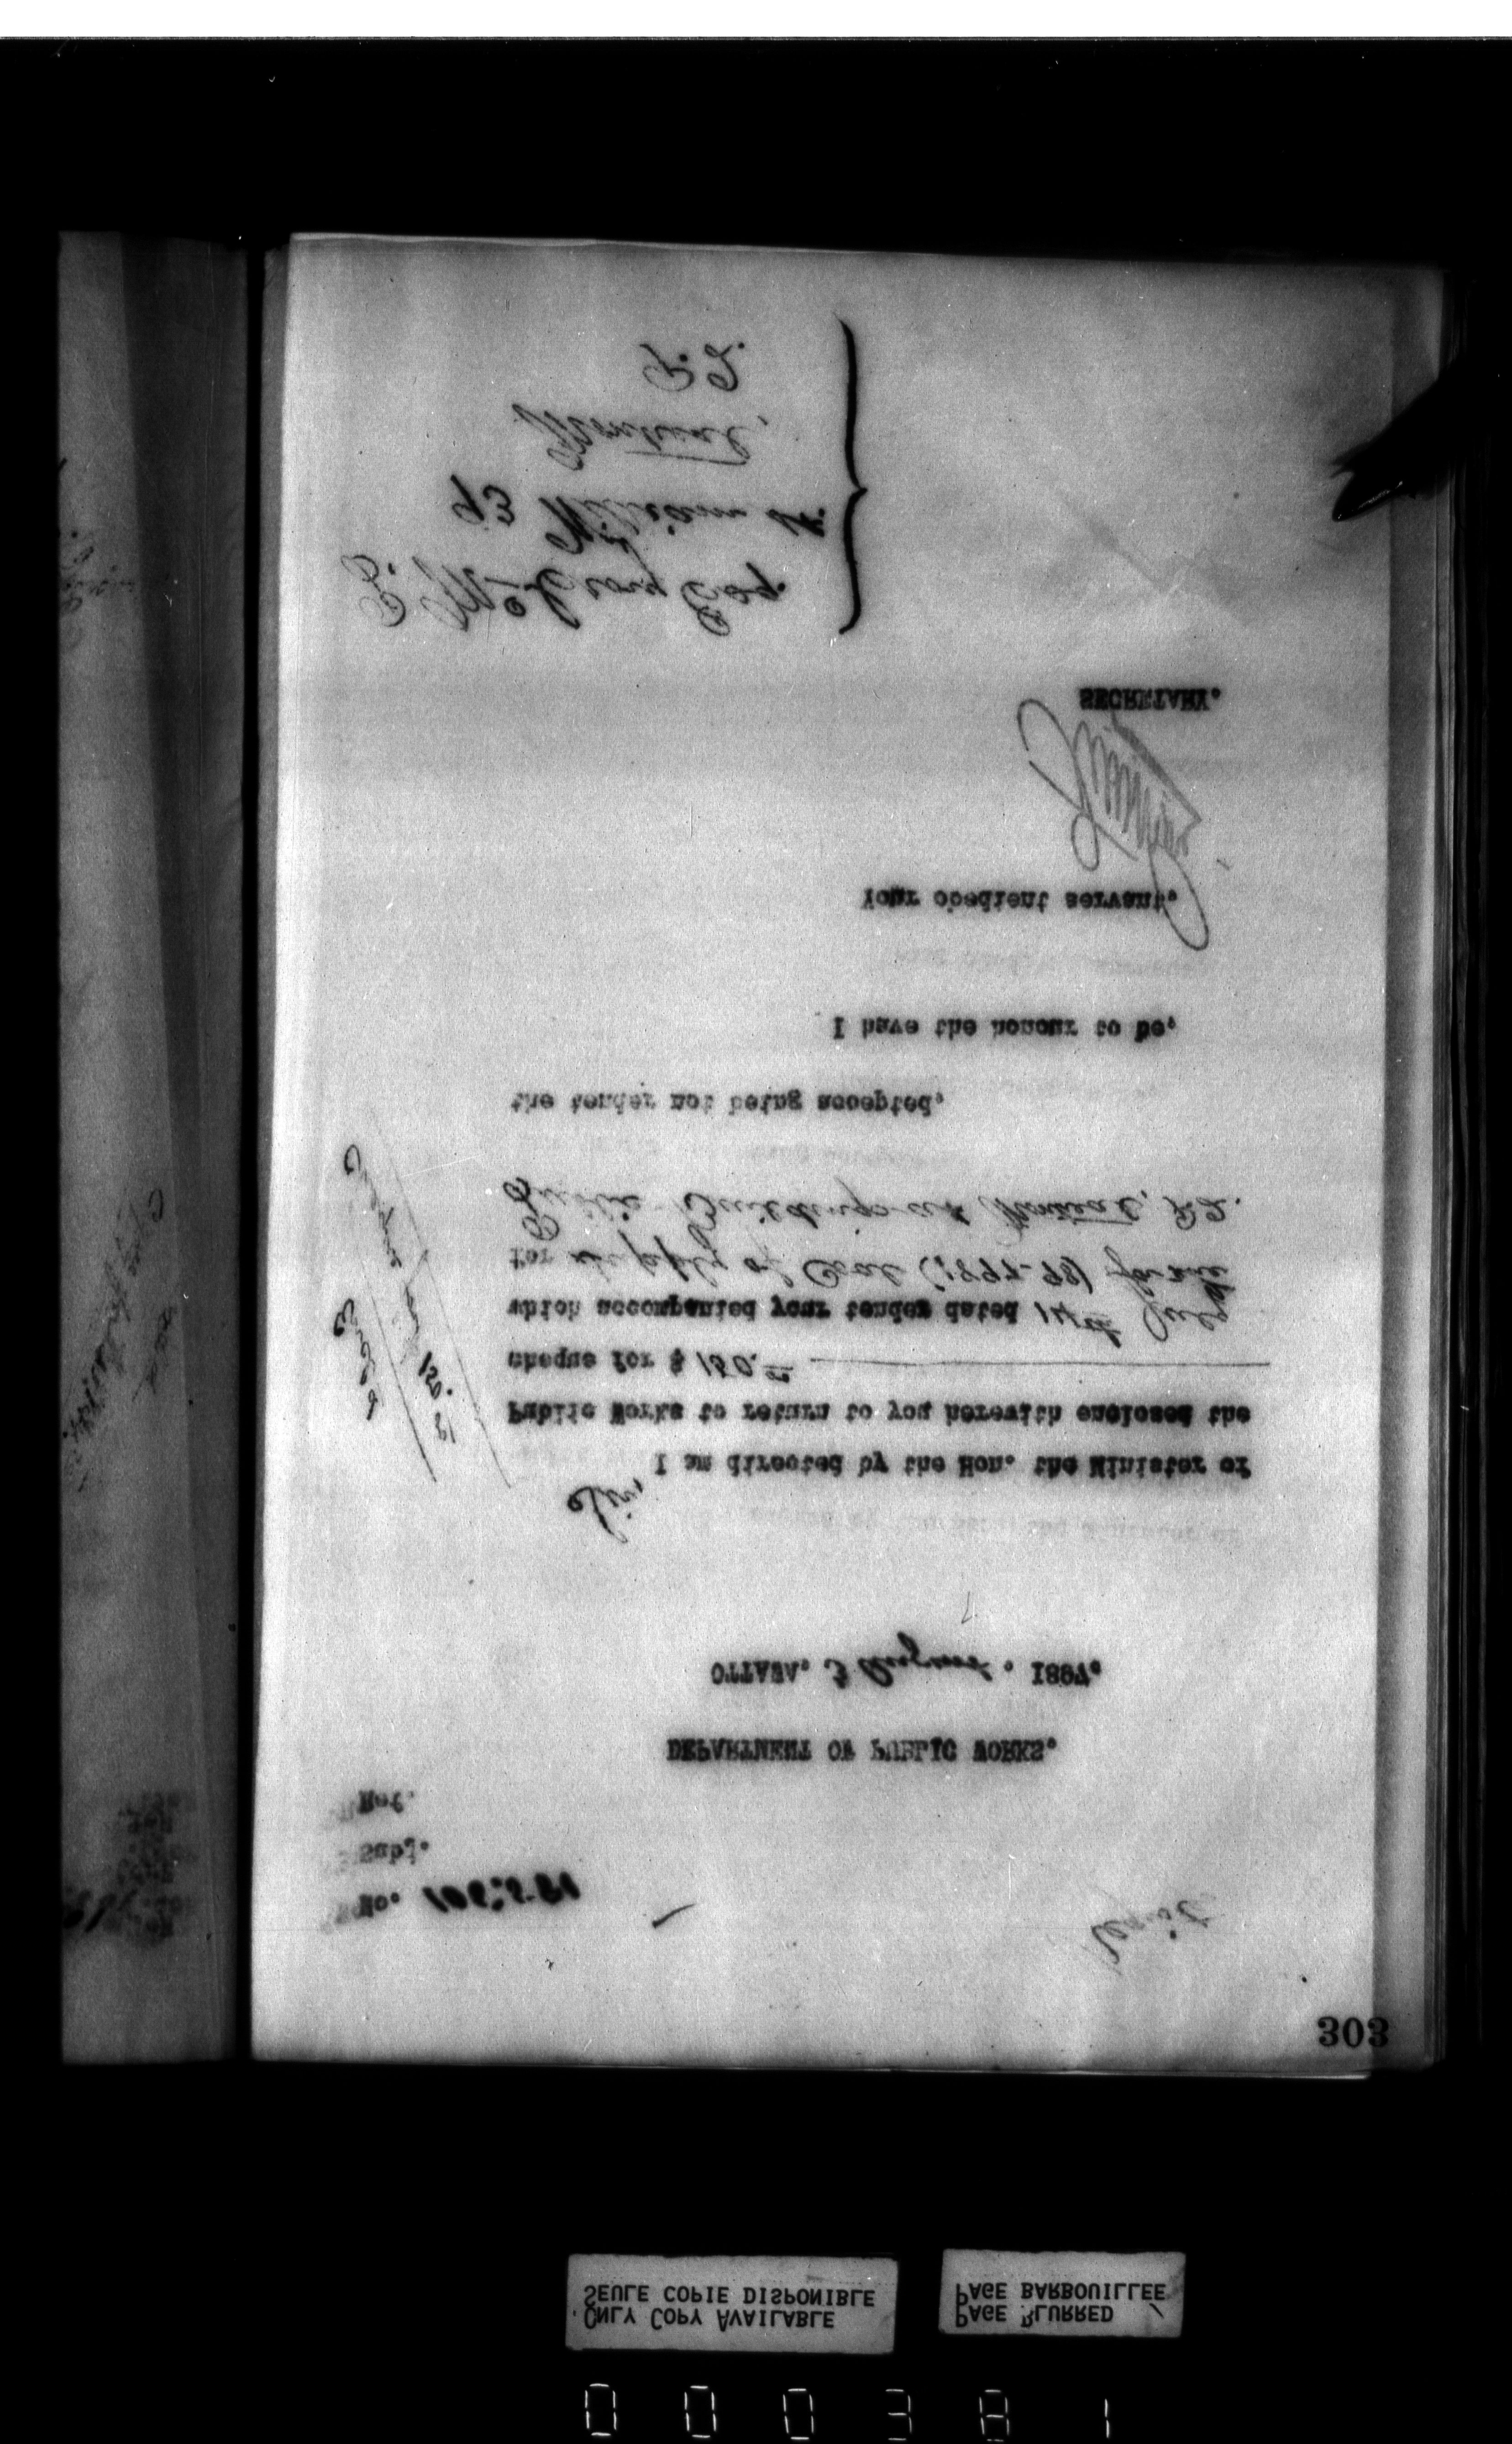 303
No. 106581
Subj.
Ref.
DEPARTMENT OF PUBLIC WORKS.
OTTAWA. 3 August. 1897.
Sir,
I am directed by the Hon. the Minister of
Public Works to return to you herewith enclosed the
cheque for $ 150.
which accompanied your tender dated 14th July
for supply of Coal (1897-98) for the
Public Buildings at Montreal, P.Q.
the tender not being accepted.
I have the honour to be,
Your obedient servant,
SECRETARY.
Esq.
93 William St.
Montreal,
P.Q.
150.
ONLY COPY AVAILABLE
SEULE COPIE DISPONIBLE
PAGE BLURRED
PAGE BARBOUILLEE
000381